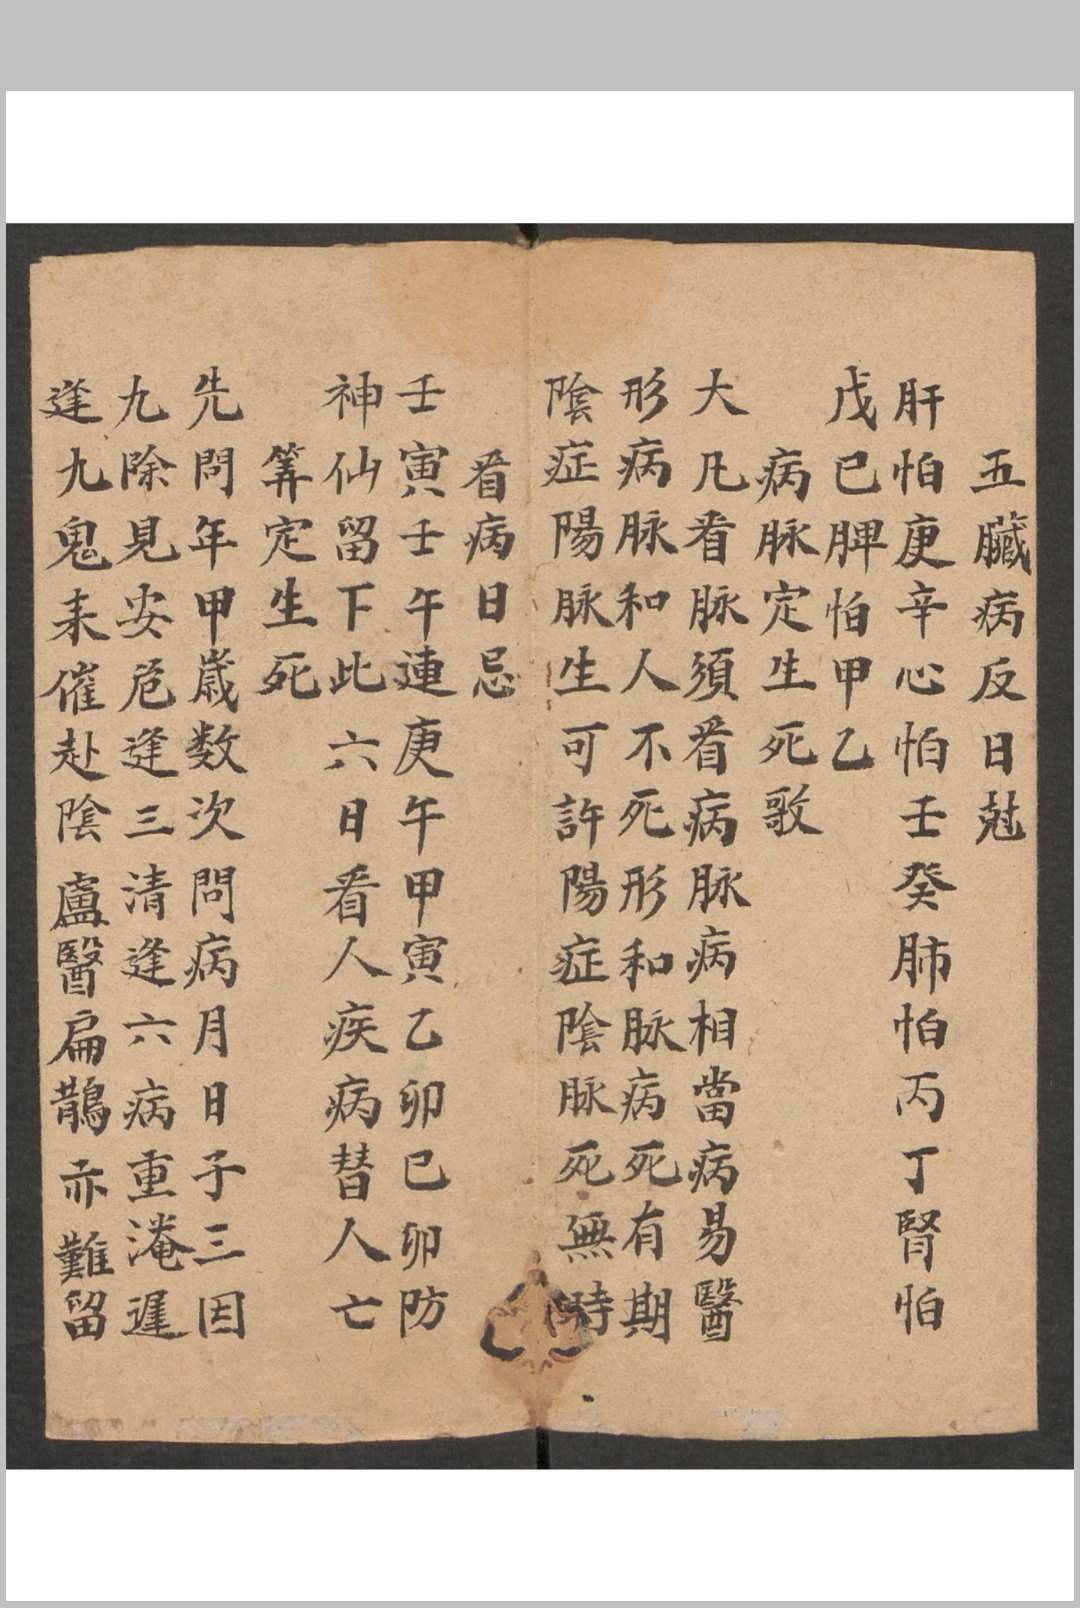 五臟病反日尅
肝怕庚辛心怕壬癸肺怕丙丁腎怕
戊己脾怕甲乙
病脉定生死歌
大凡看脉須看病脉病相當病易醫
形病脉和人不死形和脉病死有期
陰症陽脉生可許陽症陰脉死無時
看病日忌
壬寅壬午連庚午甲寅乙卯巳卯防
神仙留下此六日看人疾病替人亡
筭定生死
先問年甲歲数次問病月日子三因
九除見安危逢三清逢六病重淹遲
逢九鬼來催赴陰盧醫扁鵲亦難留